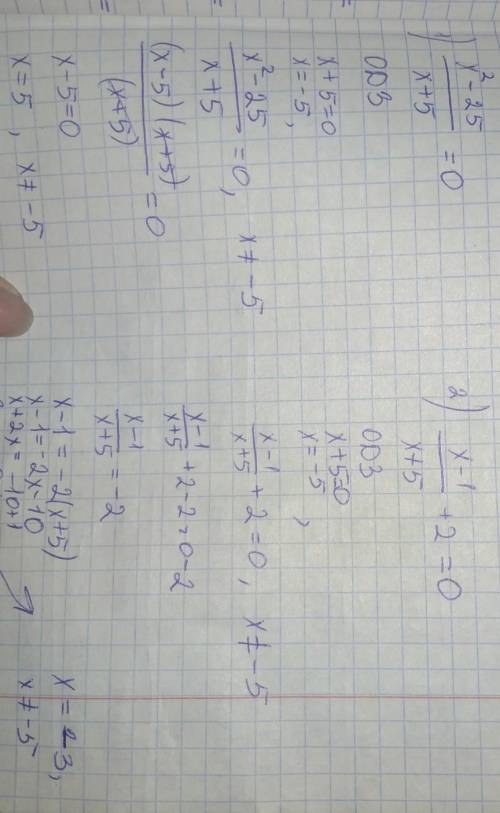 1) x²-25/x+5 = 0
ОДЗ
x+5=0
x=-5,
x²-25/x+5 = 0, x≠-5
(x-5)(x+5)/(x+5) = 0
x-5=0
x=5, x≠-5
2) x-1/x+5 + 2 = 0
ОДЗ
x+5=0
x=-5,
x-1/x+5 + 2 = 0, x≠-5
x-1/x+5 + 2-2 = 0-2
x-1/x+5 = -2
x-1=-2(x+5)
x-1=-2x-10
x+2x=-10+1
x=-3,
x≠-5